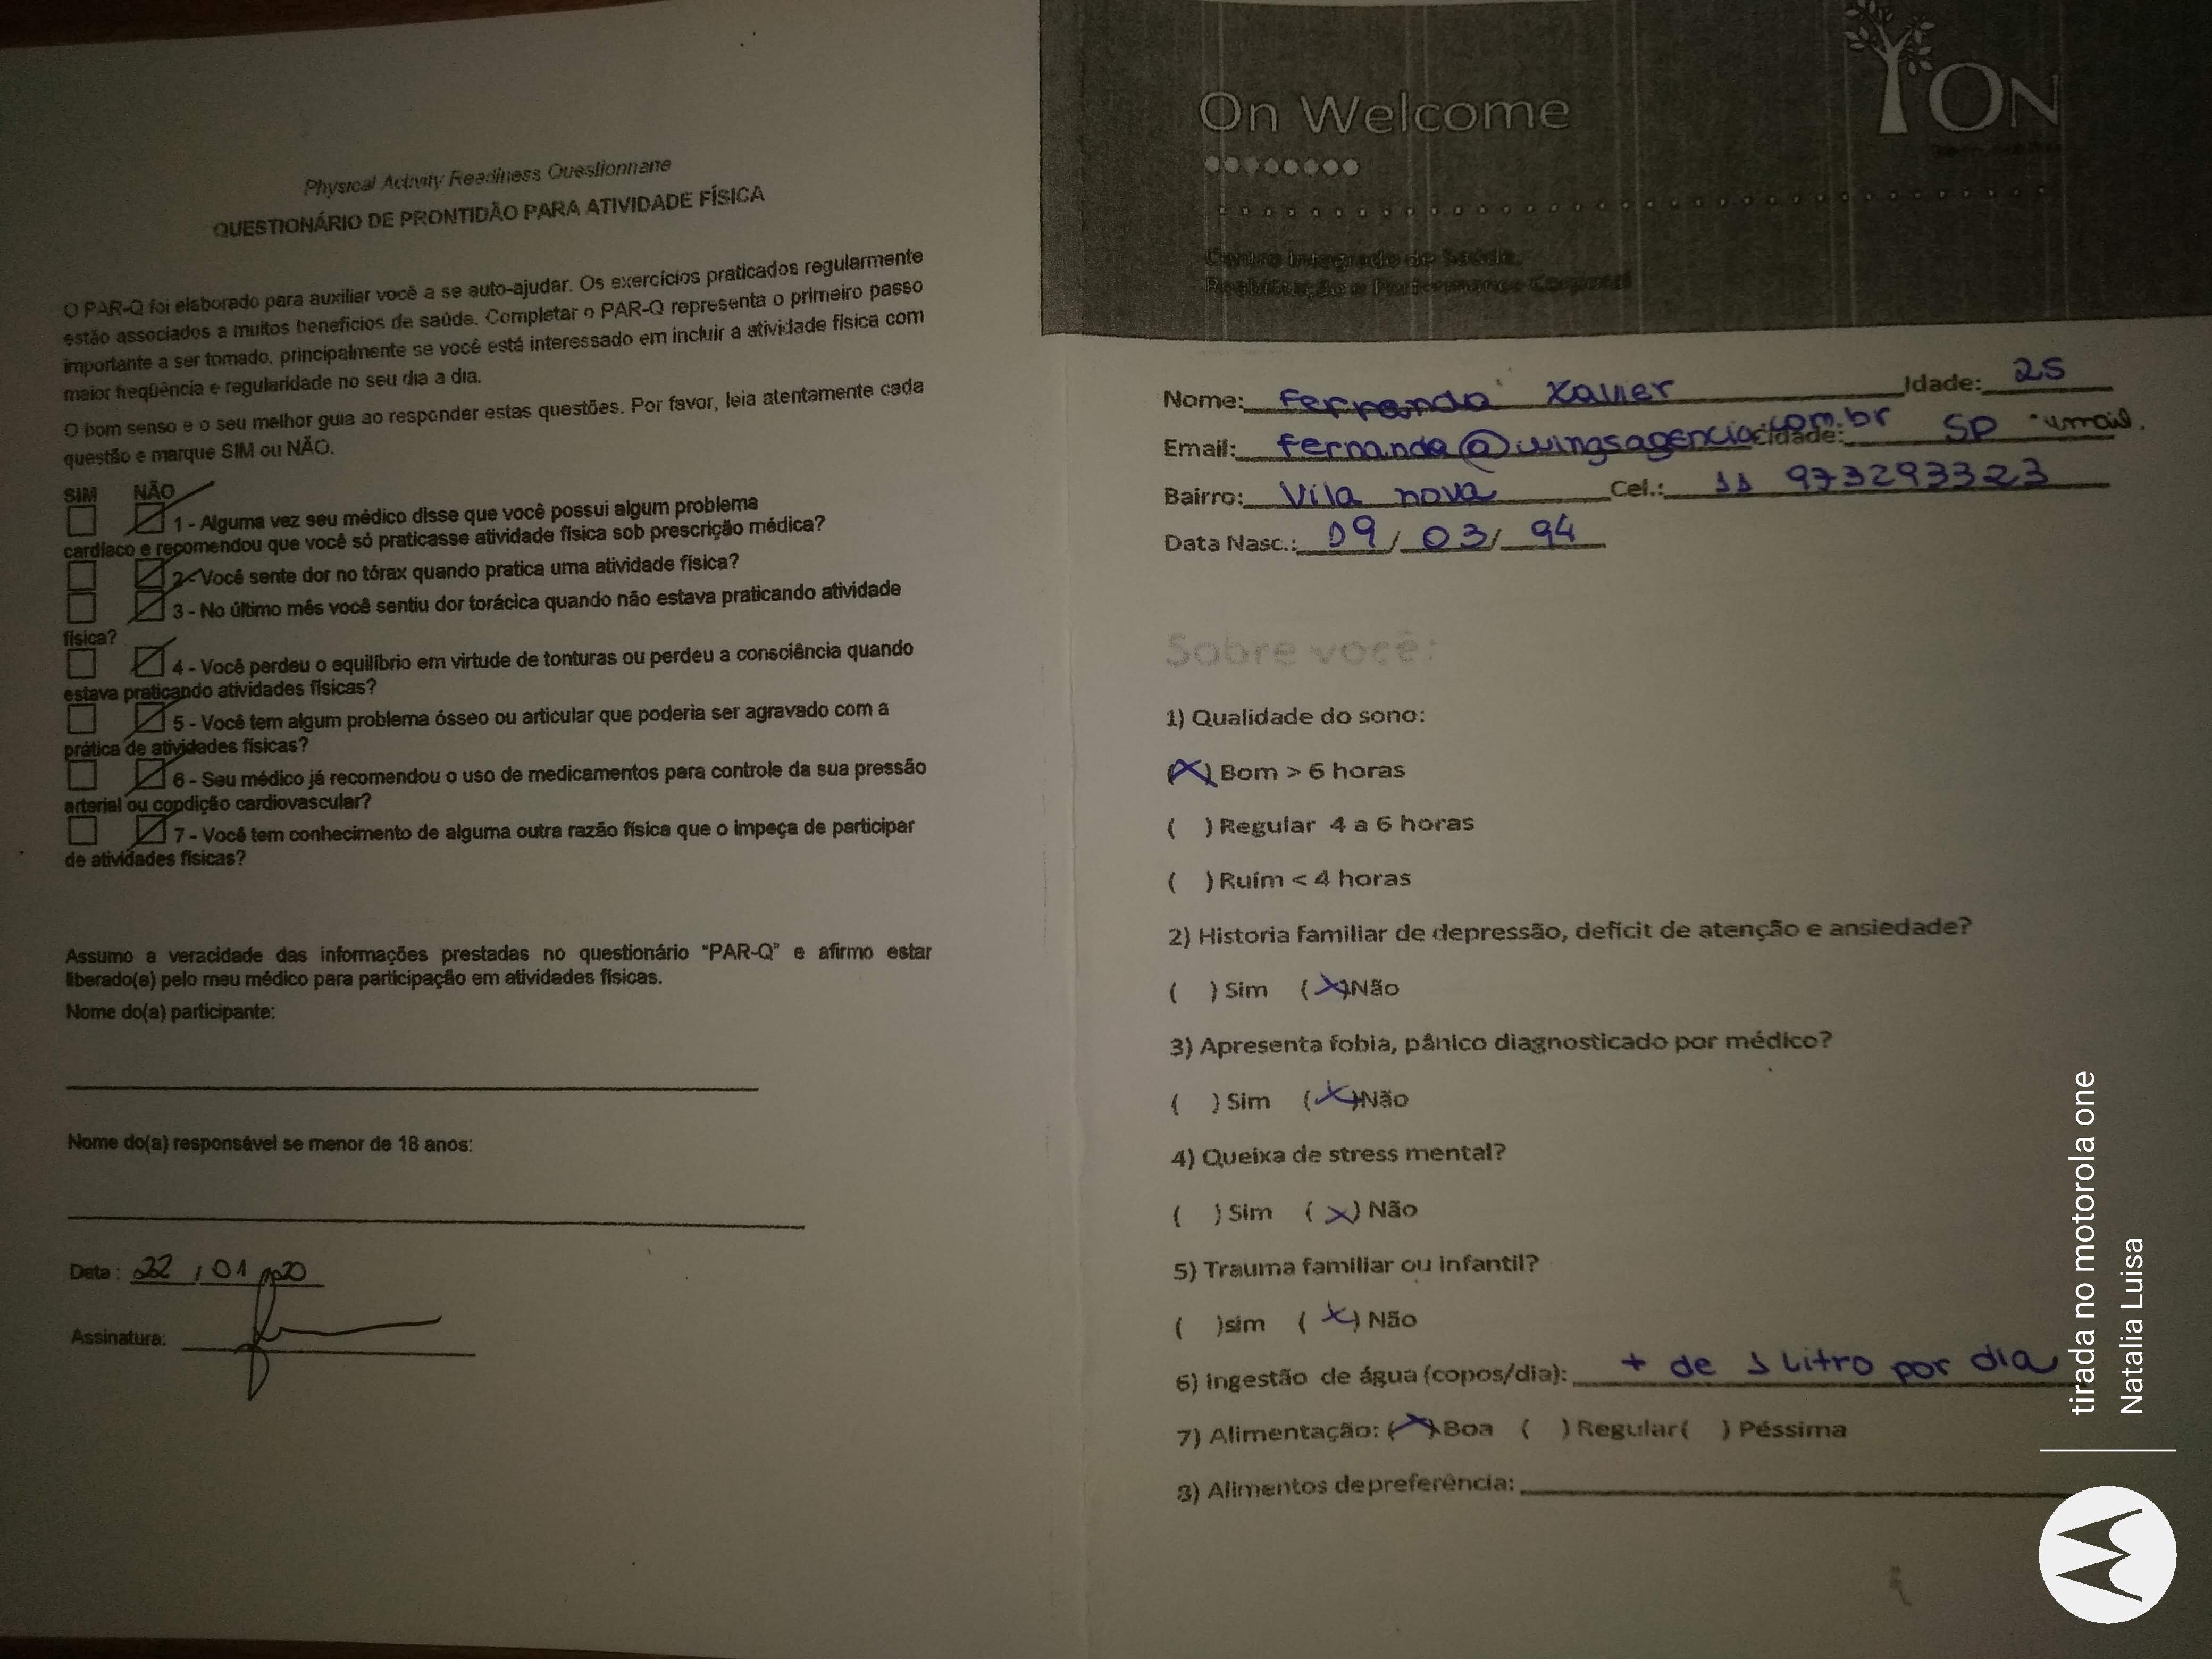 Physical Activity Readiness Questionnaire
QUESTIONÁRIO DE PRONTIDÃO PARA ATIVIDADE FÍSICA
O PAR-Q foi elaborado para auxiliar você a se auto-ajudar. Os exercícios praticados regularmente
estão associados a muitos benefícios de saúde. Completar o PAR-Q representa o primeiro passo
importante a ser tomado, principalmente se você está interessado em incluir a atividade física com
maior freqüência e regularidade no seu dia a dia.
O bom senso e o seu melhor guia ao responder estas questões. Por favor, leia atentamente cada
questão e marque SIM ou NÃO.
SIM NÃO
1 - Alguma vez seu médico disse que você possui algum problema
cardíaco e recomendou que você só praticasse atividade física sob prescrição médica?
2 - Você sente dor no tórax quando pratica uma atividade física?
3 - No último mês você sentiu dor torácica quando não estava praticando atividade
física?
4 - Você perdeu o equilíbrio em virtude de tonturas ou perdeu a consciência quando
estava praticando atividades físicas?
5 - Você tem algum problema ósseo ou articular que poderia ser agravado com a
prática de atividades físicas?
6 - Seu médico já recomendou o uso de medicamentos para controle da sua pressão
arterial ou condição cardiovascular?
7 - Você tem conhecimento de alguma outra razão física que o impeça de participar
de atividades físicas?
Assumo a veracidade das informações prestadas no questionário "PAR-Q" e afirmo estar
liberado(a) pelo meu médico para participação em atividades físicas.
Nome do(a) participante:
Nome do(a) responsável se menor de 18 anos:
Data : 22 / 01 / 20
Assinatura:
On Welcome
ON
Nome: Fernanda Xavier Idade: 25
Email: fernanda@wingsagencia.com.br cidade: SP
Bairro: Vila nova Cel.: 11 973293323
Data Nasc.: 19 / 03 / 94
Sobre você:
1) Qualidade do sono:
(X) Bom > 6 horas
( ) Regular 4 a 6 horas
( ) Ruim < 4 horas
2) Historia familiar de depressão, deficit de atenção e ansiedade?
( ) Sim (X) Não
3) Apresenta fobia, pânico diagnosticado por médico?
( ) Sim (X) Não
4) Queixa de stress mental?
( ) Sim (X) Não
5) Trauma familiar ou infantil?
( ) sim (X) Não
6) Ingestão de água (copos/dia): + de 1 Litro por dia
7) Alimentação: (X) Boa ( ) Regular ( ) Péssima
8) Alimentos de preferência:
tirada no motorola one
Natalia Luisa